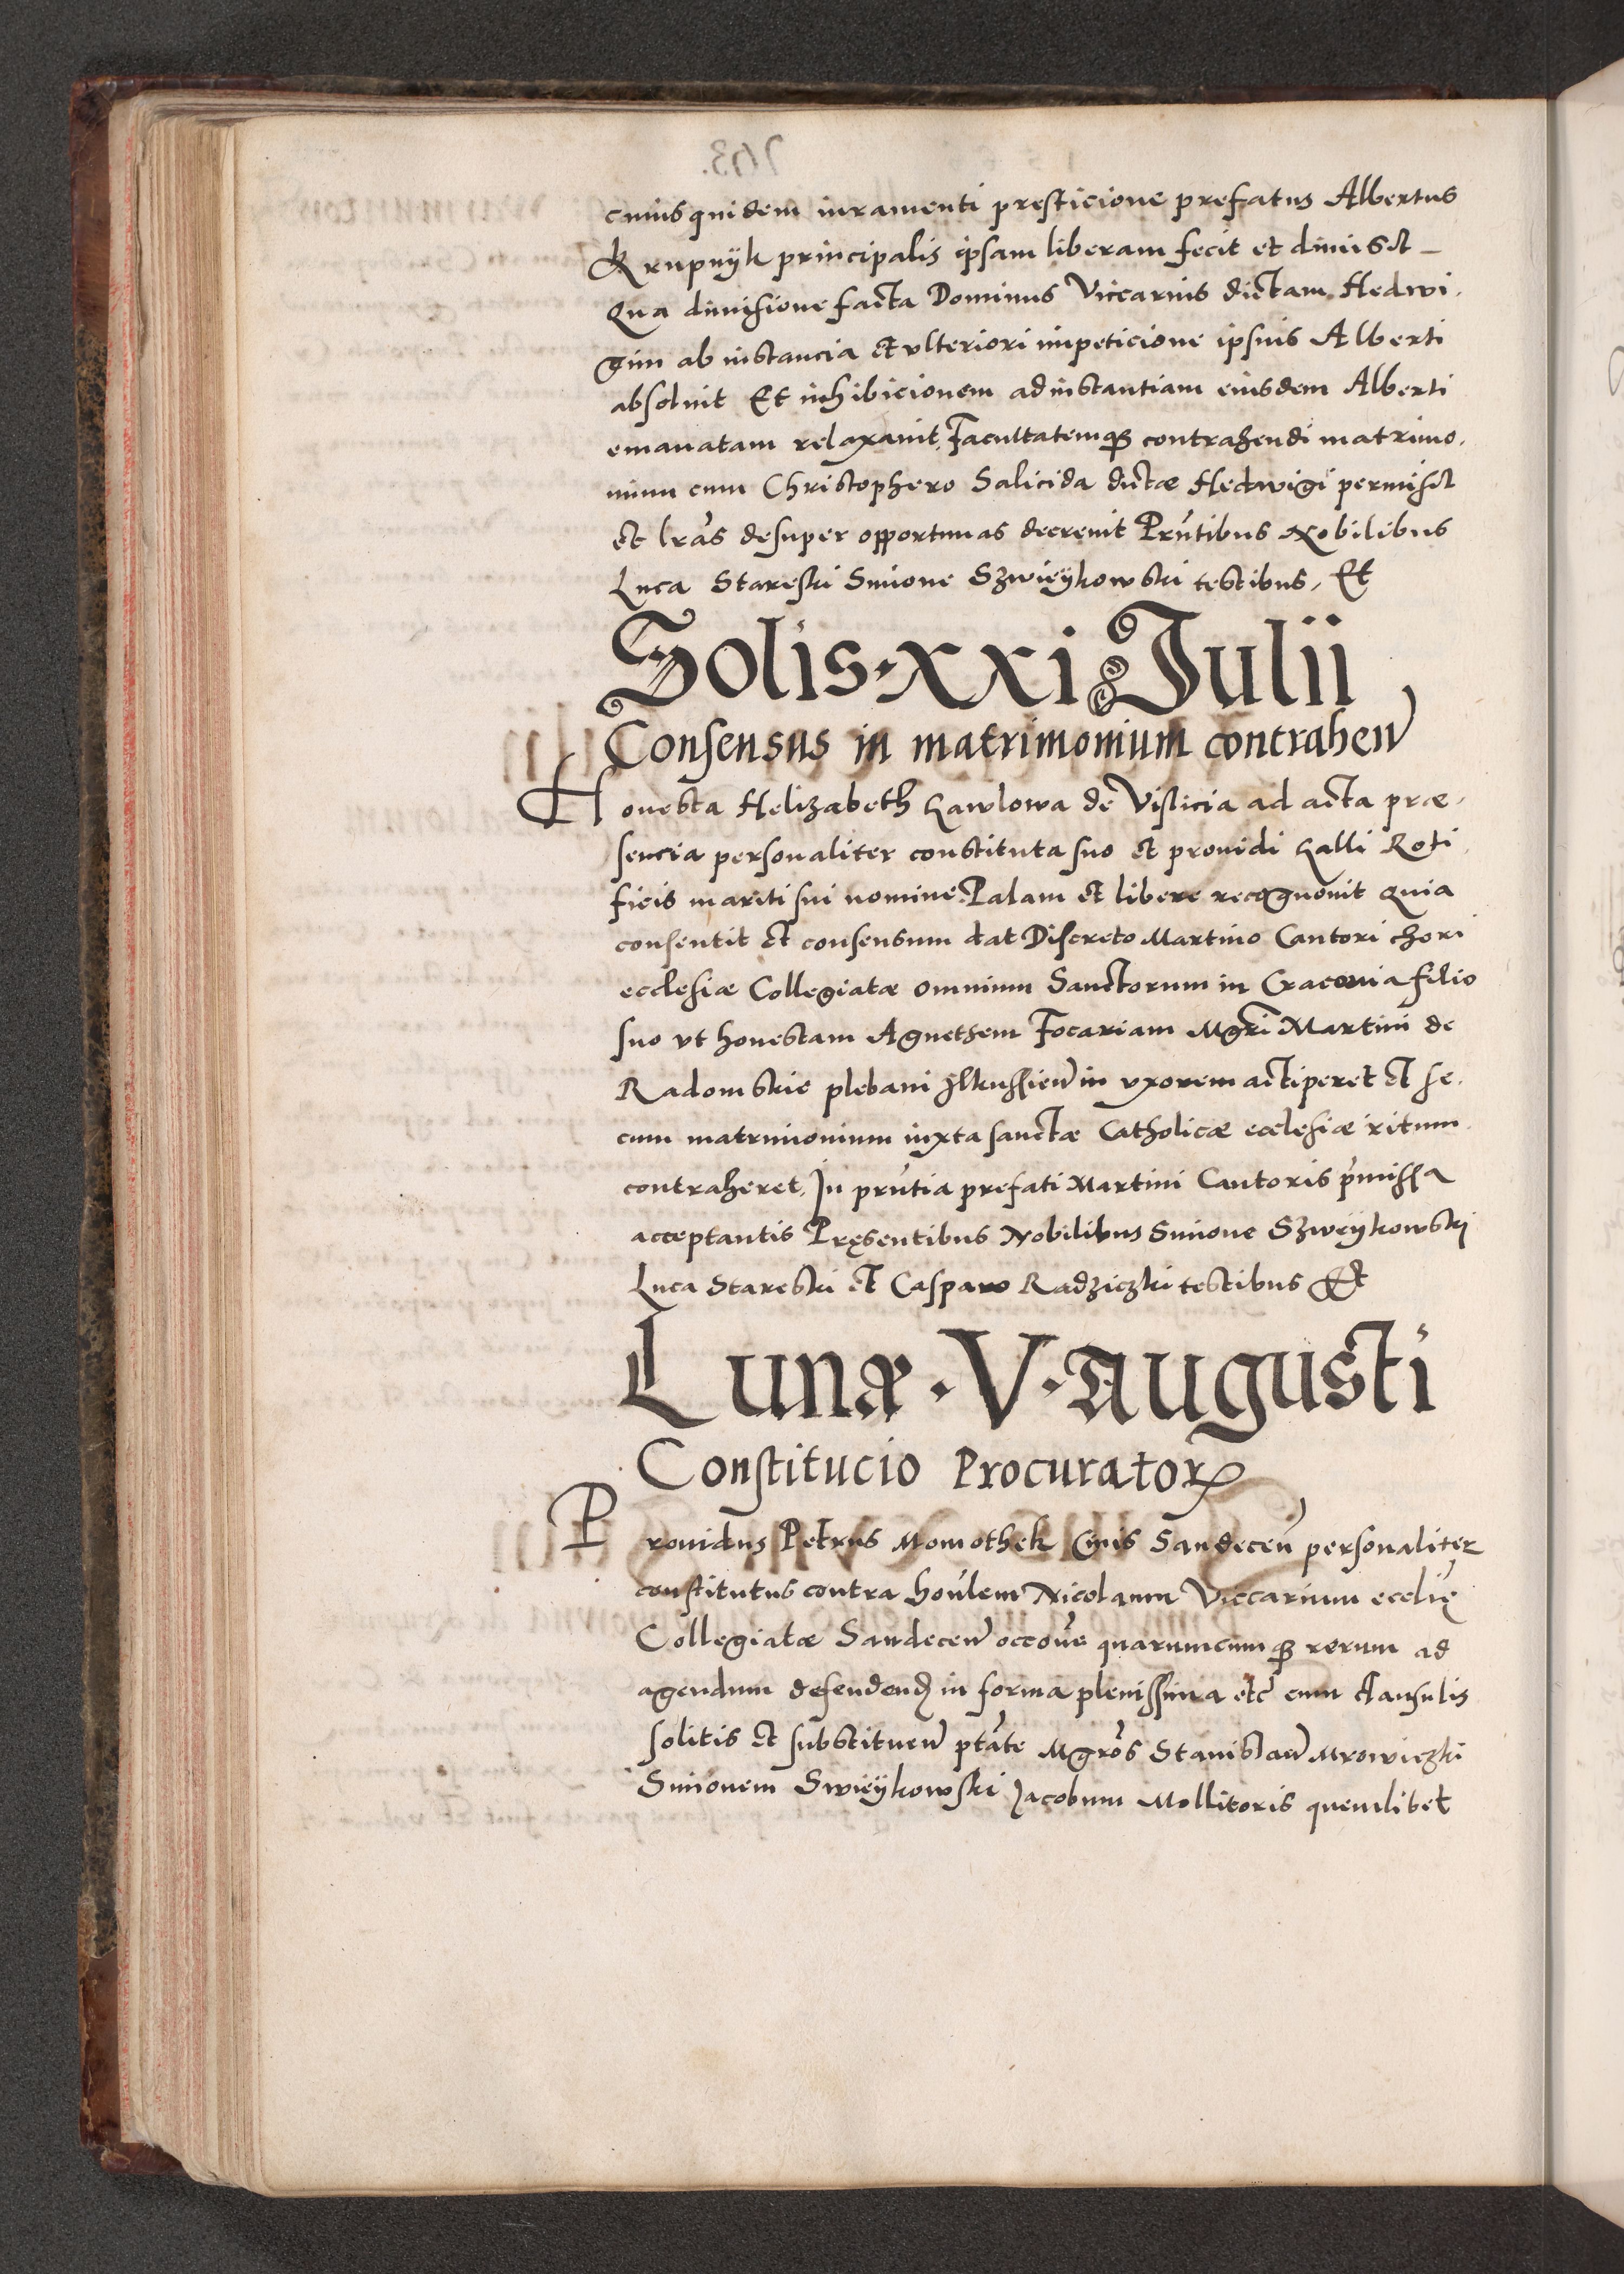 cuius quidem iuramenti presticione prefatus Albertus
Krupnÿk principalis ipsam liberam fecit et dimisit
Qua dimisione facta Dominus Viccarius dictam Hedwi-
gim ab instancia et vlteriori impeticione ipsius Alberti
absoluit Et inhibicionem ad instantiam eiusdem Alberti
emanatam relaxauit, Facultatemq3 contrahendi matrimo-
nium cum Christophero Salicida dictæ Hedwigi permisit
et lr̃as desuper opportunas decreuit Prñtibus Nobilibus
Luca Stareski Simone Szwieÿkowski testibus, Et
Solis · xxi Julii
Consensus in matrimonium contrahen̄
Honesta Helizabeth Gawlowa de Vislicia ad acta præ-
sencia personaliter constituta suo et prouidi Galli Roti-
ficis mariti sui nomine Palam et libere recognouit quia
consentit et consensum dat Discreto Martino Cantori chori
ecclesiæ Collegiatæ omnium Sanctorum in Cracouia filio
suo vt honestam Agnethem Focariam Mgr̃i Martini de
Radomskie plebani Ilkussien̄ in vxorem acciperet et se-
cum matrimonium iuxta sanctæ Catholicæ ecclesiæ ritum
contraheret, In prñtia prefati Martini Cantoris p̃missa
acceptantis Pręsentibus Nobilibus Simone Szweÿkowski
Luca Stareski et Casparo Radziczki testibus Et
Lunæ · V · Augusti
Constitucio Procuratorꝝ
Prouidus Petrus Momothek Ciuis Sandecen̄ personaliter
constitutus contra hon̄lem Nicolaum Viccarium eccl̃ię
Collegiatæ Sandecen̄ occõne quarumcumq3 rerum ad
agendum defendenḑ in forma plenissima etc̄ cum clausulis
solitis et substituen̄ ptãte Mgr̃os Stanislaū Mrowiczki
Simonem Swieÿkowski Jacobum Mollitoris quemlibet